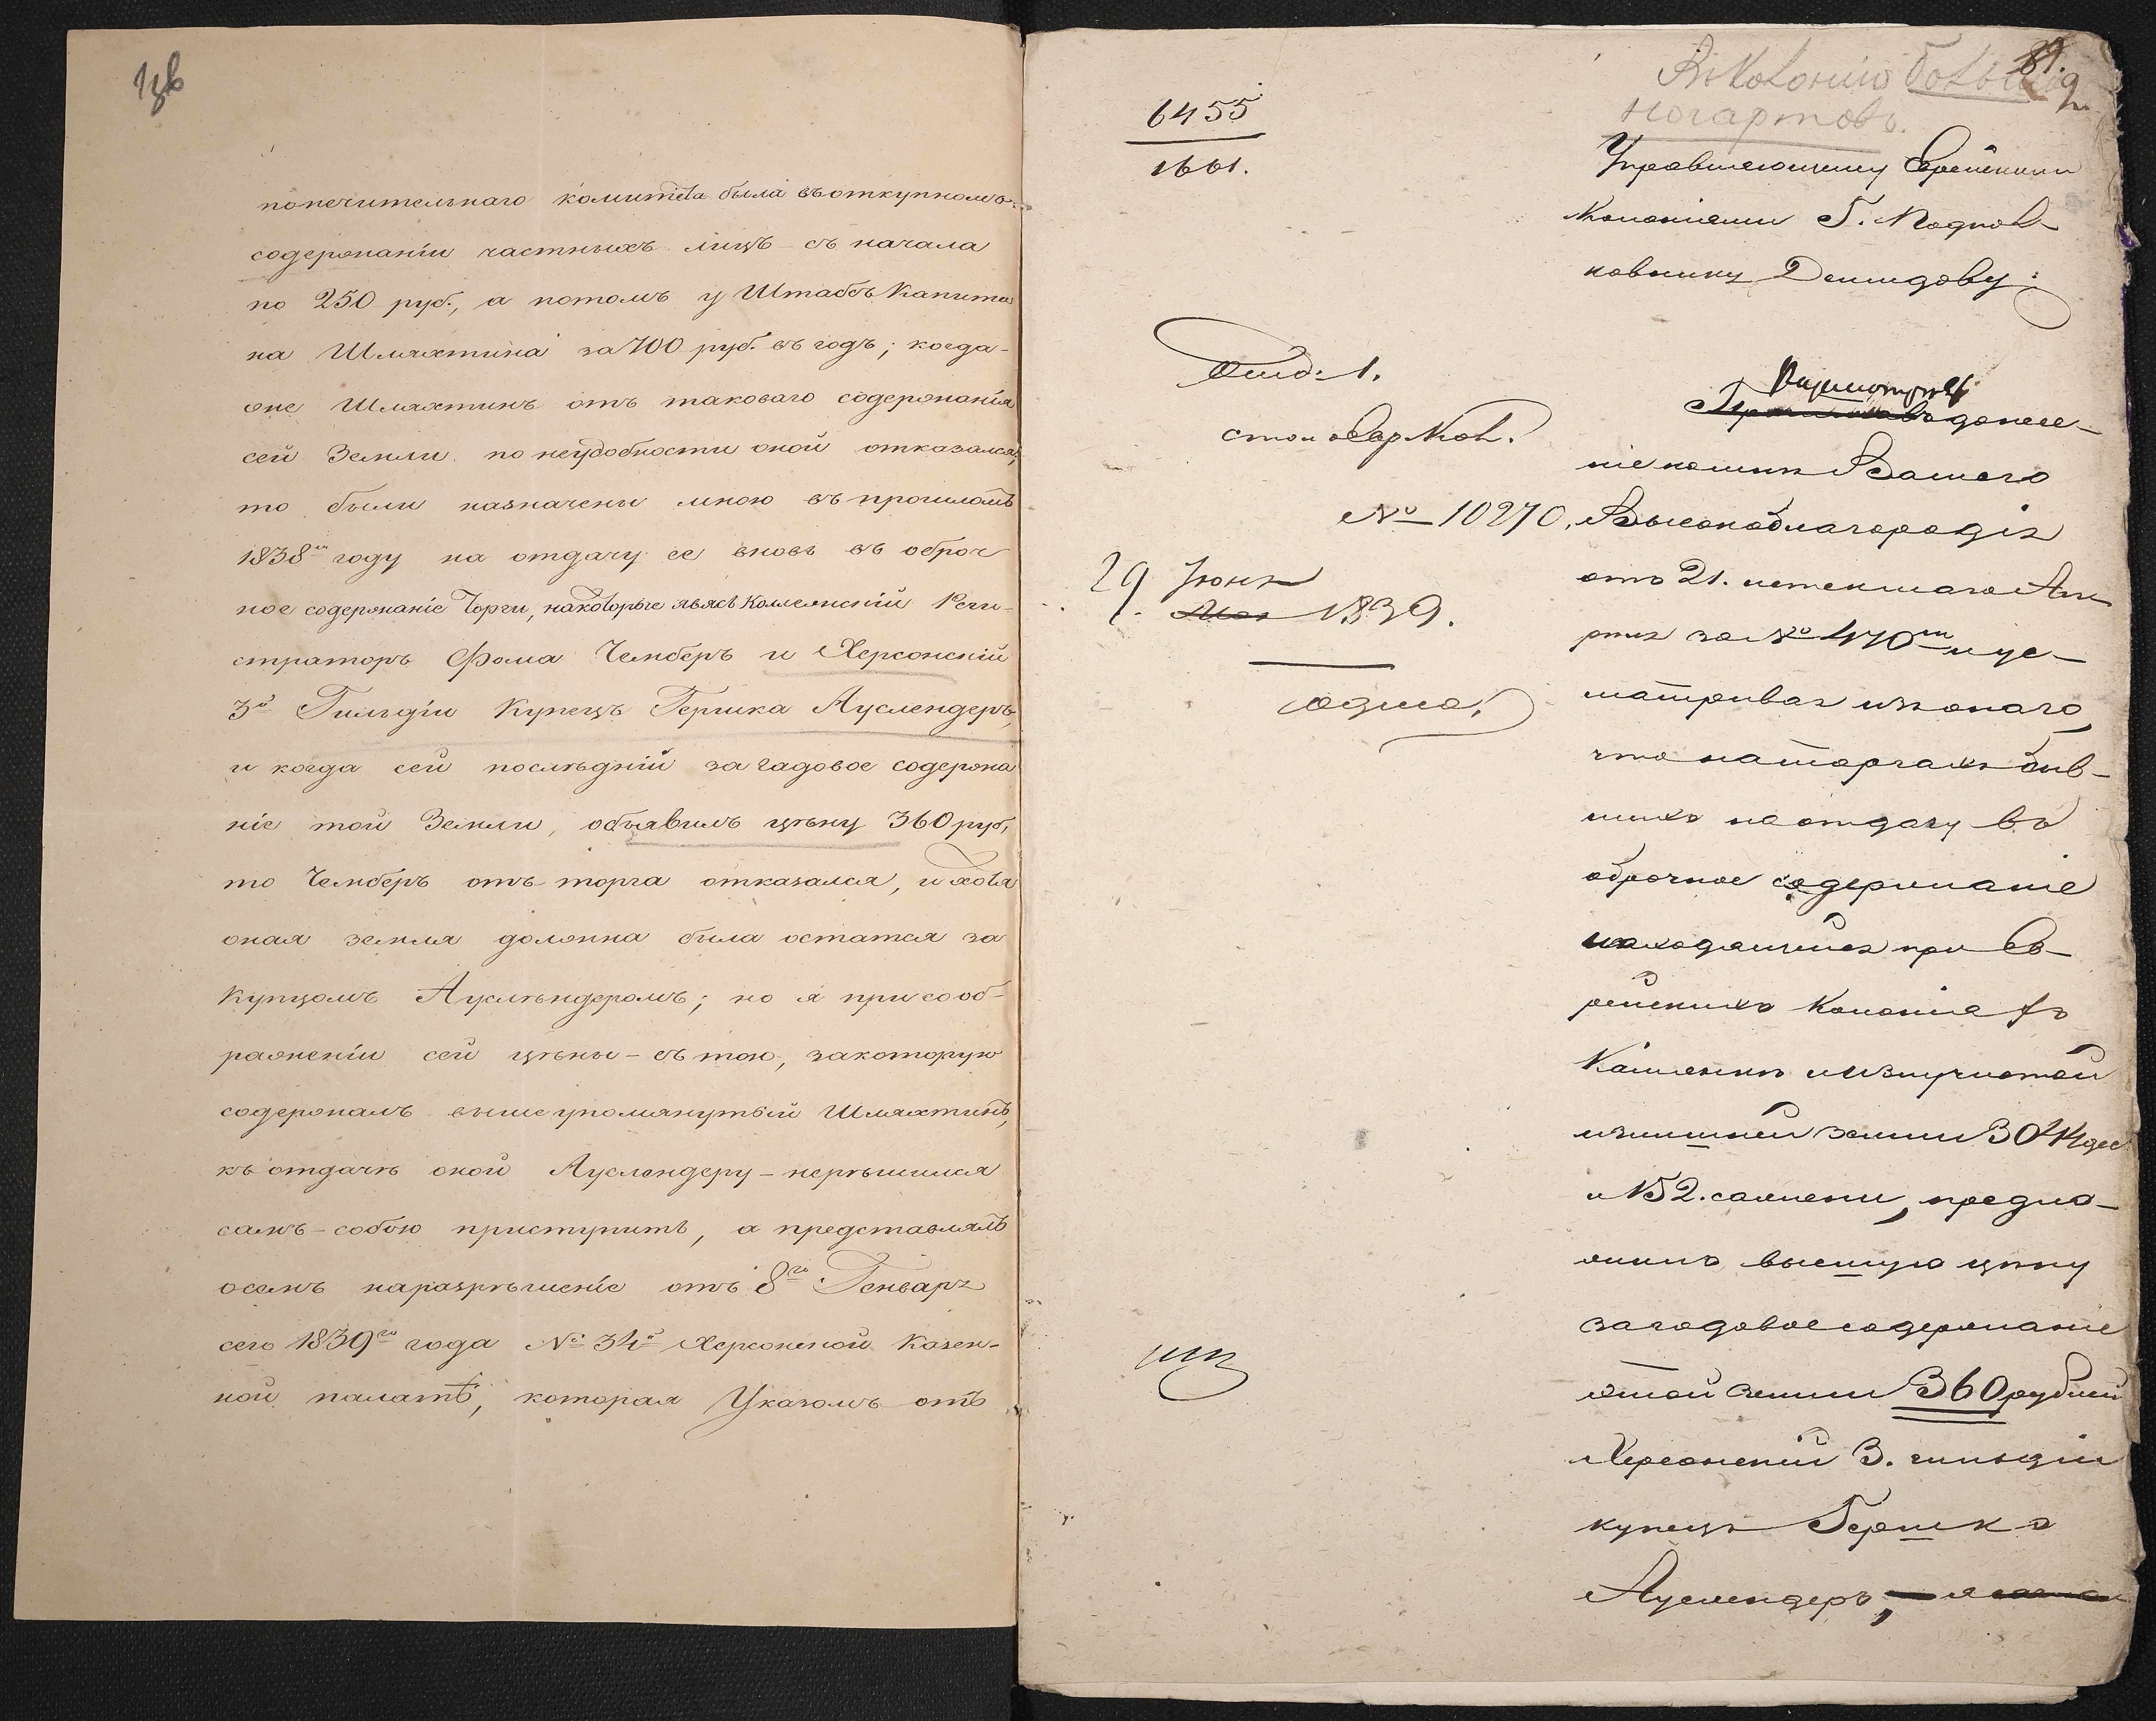 попечительнаго комитета была въ откупномъ
содержаніи частныхъ лицъ съ начала
по 250 руб., а потомъ у Штабсъ Капита
на Шляхтина за 700 руб. въ годъ; когда
оне Шляхтинъ отъ таковаго содержанія
сей Земли по неудобности оной отказался,
то были назначены мною въ прошломъ
1838м году на отдачу ее вновь въ оброч
ное содержаніе Торги, на которые явясь Коллежскій Реги-
страторъ Фома Чемберъ и Херсонскій
3й Гильдіи Купецъ Гершка Ауслендеръ,
и когда сей послѣдній за гадовое содержа
ніе той Земли, объявилъ цѣну 360 руб,
то Чемберъ отъ торга отказался, и хотя
оная земля должна была остатся за
Купцомъ Ауслѣндеромъ; но я при сооб-
раженіи сей цѣны - съ тою, за которую
содержалъ вышеупомянутый Шляхтинъ,
къ отдачѣ оной Ауслендеру - нерѣшился
самъ-собою приступить, а представлялъ
осемъ на разрѣшеніе отъ 8го Генваря
сего 1839го года № 34й Херсонской Казен-
ной палатѣ, которая Указомъ отъ
89.
Въ Колонію Большой
Ногартовъ.
6455
1661.
Управляющему Еврейскими
Колоніями Г. Подпол-
ковнику Демидову:
Отд: 1.
столъ Евр Кол.
№ 10270.
29 Іюня
Мая 1839.
Разсмотревъ
донесе-
ніе ко мнѣ Вашего
Высокоблагородія
отъ 21. истекшаго Ап
рѣля за № 470м и ус-
матривая изъ онаго,
что на торгахъ быв-
шихъ на отдачу въ
оброчное содержаніе
находящейся при Ев-
рейскихъ Колоніяхъ
Каменкѣ и Излучистой
излишней земли 3044 дес
и 152. сажени, предло-
жилъ высшую цѣну
за годовое содержаніе
этой земли 360 рублей
Херсонскій 3. гильдіи
купецъ Гершка
Ауслендеръ,